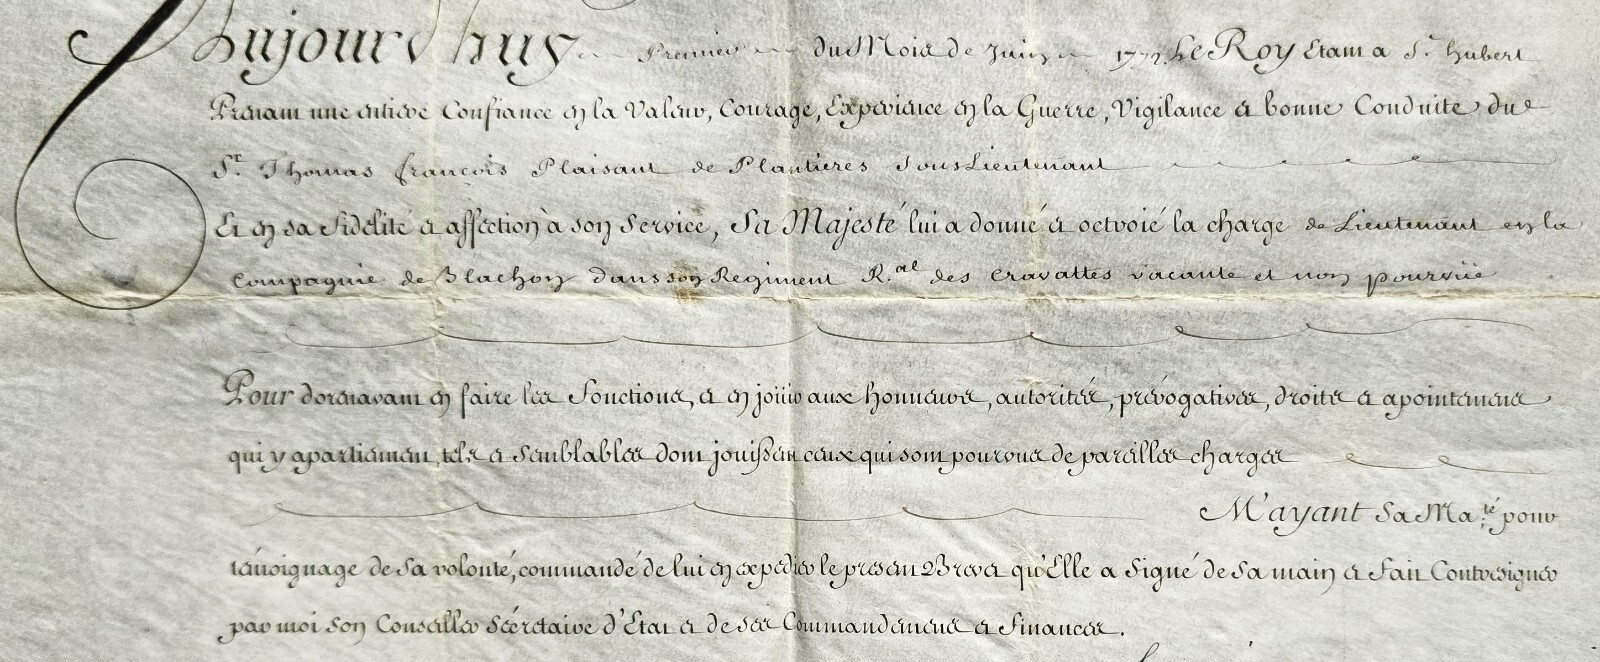 Aujourd'huy Premier du Mois de Juin 1772 Le Roy Etant a St. Hubert
Prenant une entiere Confiance en la Valeur, Courage, Experience en la Guerre, Vigilance et bonne Conduite du
Sr. Thomas françois Plaisant de Plantieres SousLieutenant
Et en sa fidelité et affection à son Service, Sa Majesté lui a donné et octroié la charge de Lieutenant en la
Compagnie de Blachon dans son Regiment R.al des cravattes vacante et non pourvüe
Pour dorenavant en faire les fonctions, et en joüir aux honneurs, autorités, prérogatives, droits et apointemens
qui y apartienent, tels et Semblables dont joüissent ceux qui sont pourvus de pareilles charges
M'ayant Sa Ma.té pour
témoignage de Sa volonté, commandé de lui en expedier le présent Brevet qu'Elle a Signé de Sa main et fait Contresigner
par moi Son Conseiller Sécretaire d'Etat et de ses Commandemens et finances.